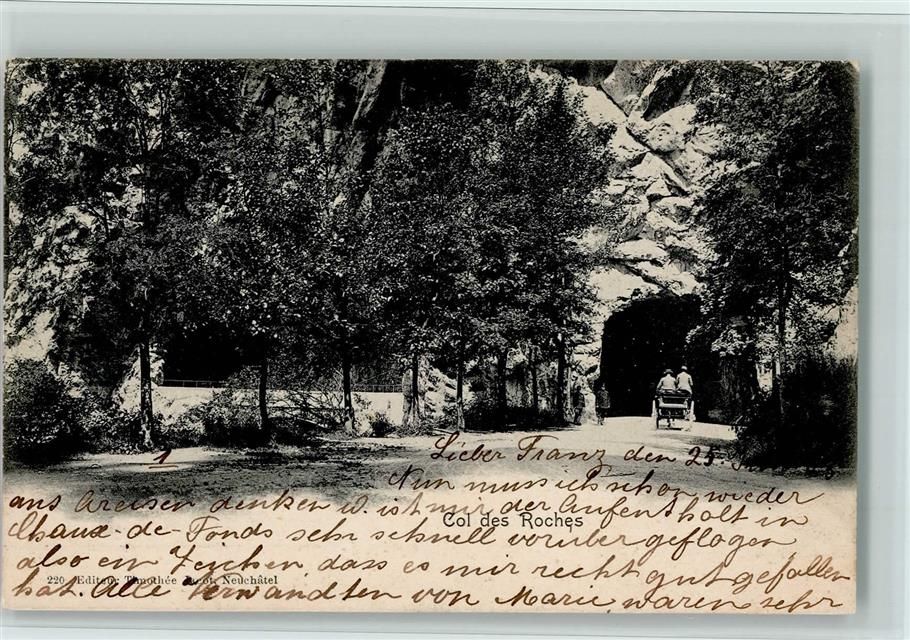 1
Lieber Franz den 25.
Nun muss ich schon wieder
ans Areisen denken u. ist mir der Aufenthalt in
Chaux-de-Fonds sehr schnell vorübergeflogen
also ein Zeichen, dass es mir recht gut gefallen
hat. Alle Verwandten von Marie waren sehr
Col des Roches
220 Editeur Timothée Jacot, Neuchâtel